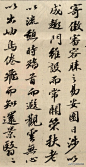 寄傲審容膝之易安園日涉以
成趣門雖設而常關策扶老
以流憩時矯首而遐觀雲無心
以出岫鳥倦飛而知還景翳